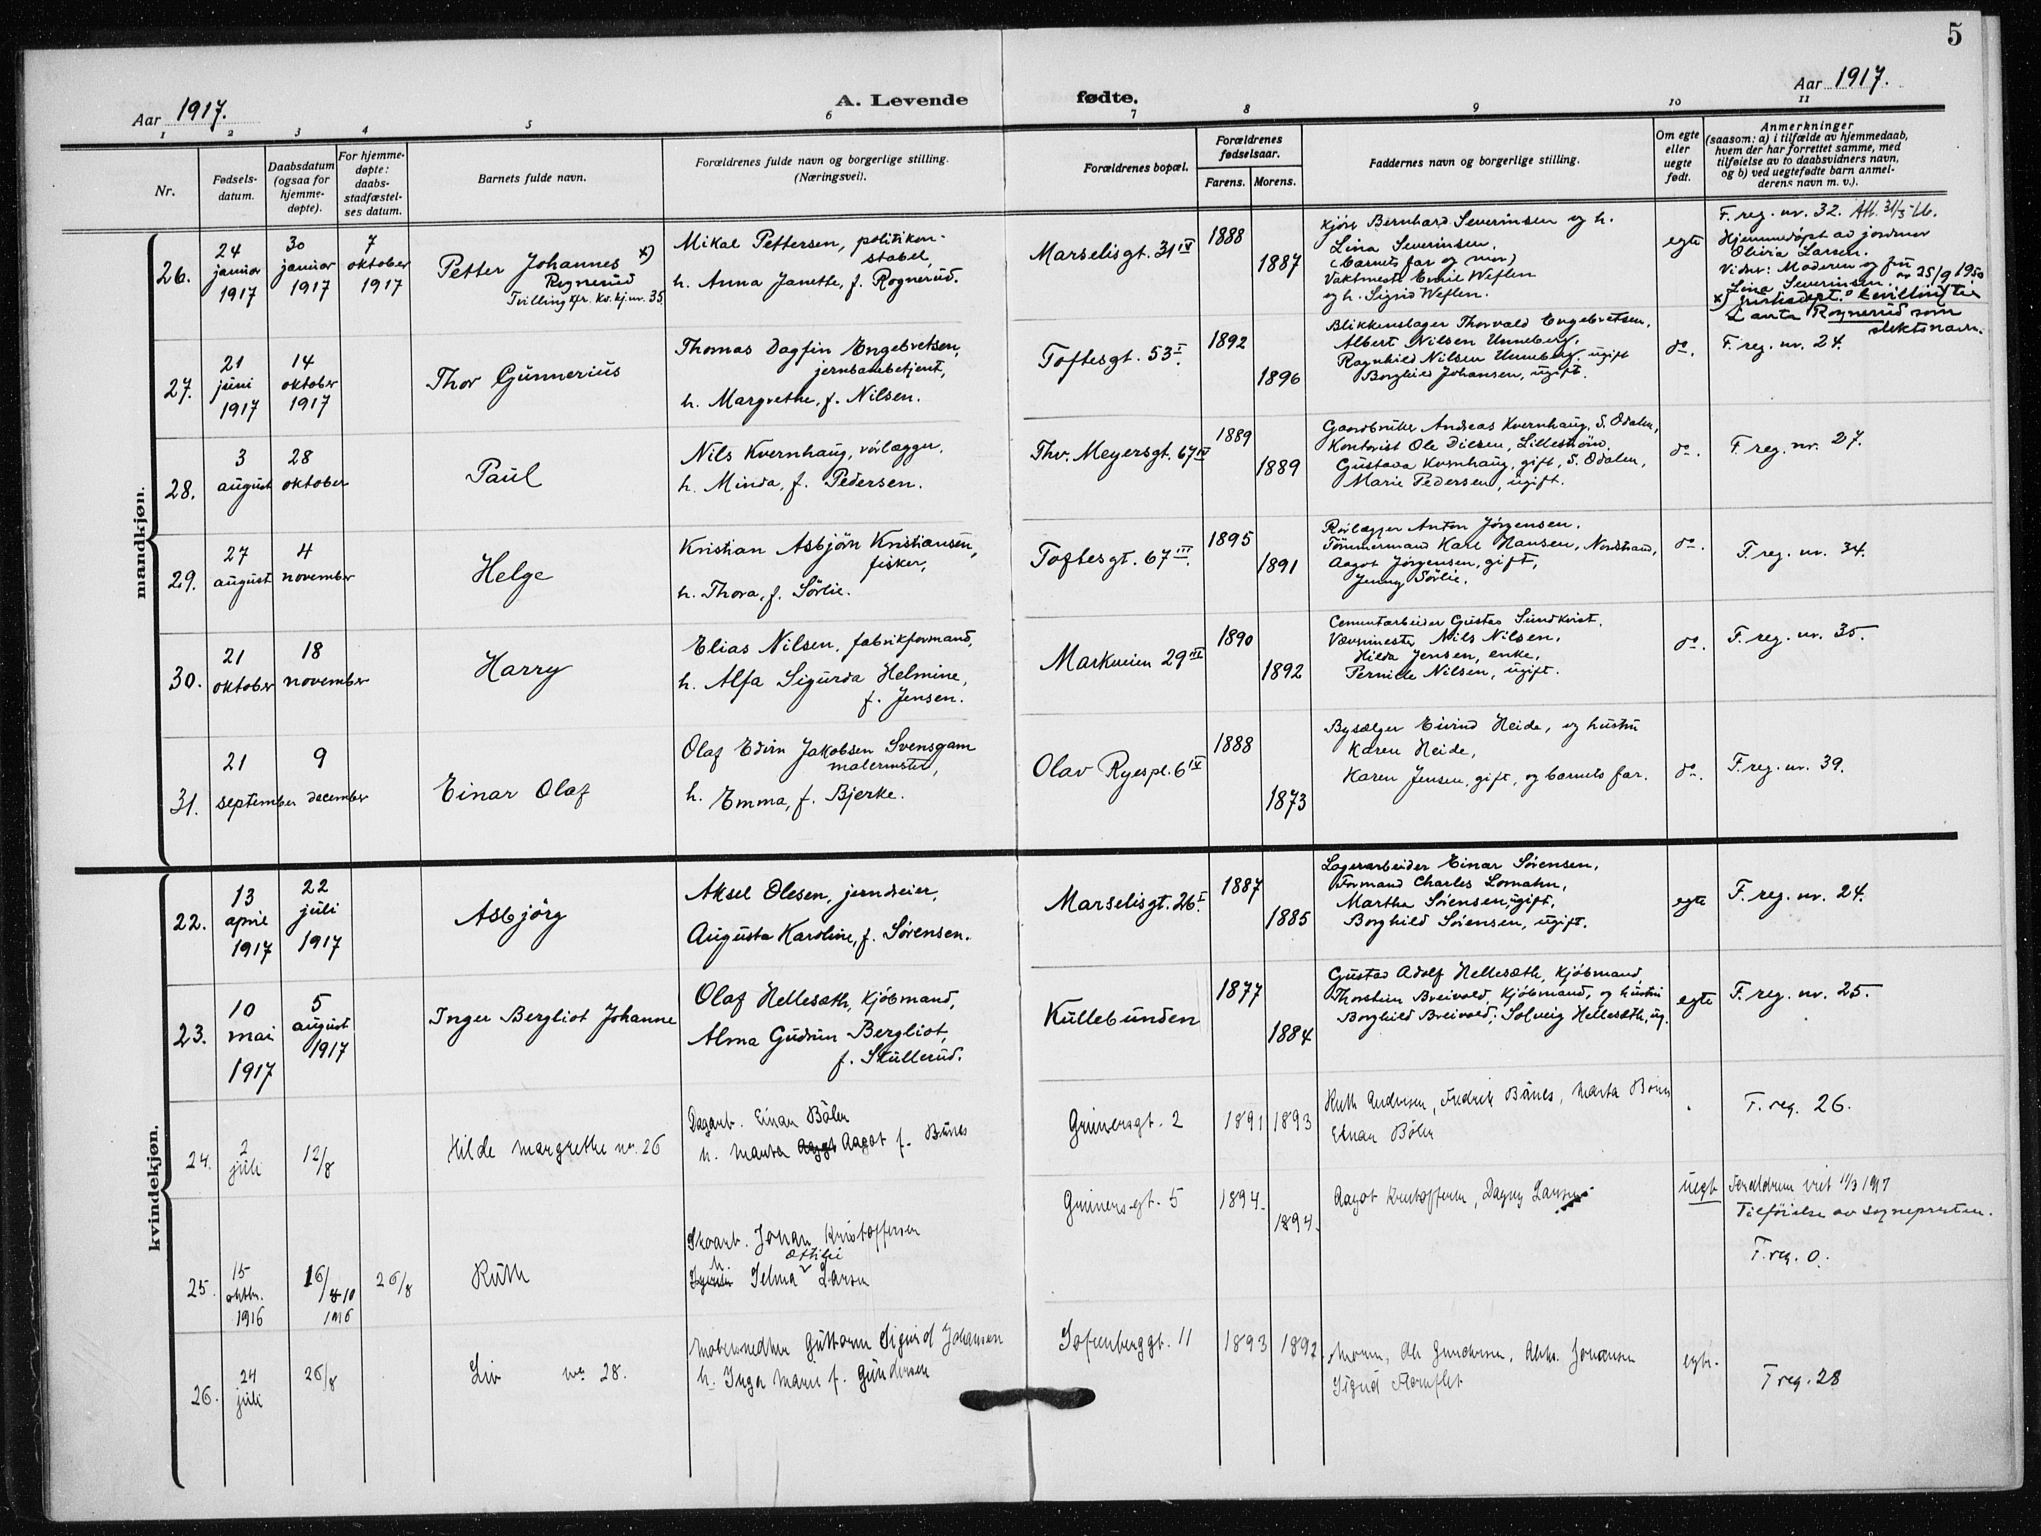 5
Aar 1917.
A. Levende
fødte.
Aar 1917.
1 2 3 4 5 6 7 8 9 10 11
Nr.
Fødsels-
datum.
Daabsdatum
(ogsaa for
hjemme-
døpte).
For hjemme-
døpte:
daabs-
stadfæstel-
ses datum.
Barnets fulde navn.
Forældrenes fulde navn og borgerlige stilling.
(Næringsvei).
Forældrenes bopæl.
Forældrenes
fødselsaar.
Farens. Morens.
Faddernes navn og borgerlige stilling.
Om egte
eller
uegte
født.
Anmerkninger
(saasom: a) i tilfælde av hjemmedaab,
hvem der har forrettet samme, med
tilføielse av to daabsvidners navn,
og b) ved uegtefødte barn anmel-
derens navn m. v.).
mandkjøn.
26.
24
januar
1917
30
januar
1917
7
oktober
1917
Petter Johannes x)
Rognerud
Tvilling kfr. kv.kj. nr. 35
Mikal Pettersen, politikon-
stabel,
h. Anna Janette, f. Rognerud.
Marselisgt. 31 IV
1888
1887
Kjøre Bernhard Severinsen og h.
Lina Severinsen.
(barnets far og mor)
Vaktmester Emil Weflen
og h. Sigrid Weflen.
egte
F. reg. nr. 32. Att. 31/5-66.
Hjemmedøpt av jordmor
Olivia Larsen.
Vidner: Moderen og fru
Lina Severinsen.
25/9 1950
Rognerud som
slektsnavn.
27.
21
juni
1917
14
oktober
1917
Thor Gunnerius
Thomas Dagfin Engebretsen,
jernbanebetjent,
h. Margrethe, f. Nilsen.
Toftesgt. 53 I
1892
1896
Blikkenslager Thorvald Engebretsen,
Albert Nilsen Unneberg,
Ragnhild Nilsen Unneberg, ugift
Borghild Johansen, ugift.
do.
F. reg. nr. 24.
28.
3
august
28
oktober
Paul
Nils Kvernhaug, rørlægger,
h. Minda, f. Pedersen.
Thv. Meyersgt. 67 IV
1889
1889
Gaardbruker Andreas Kvernhaug, S. Odalen,
Kontorist Ole Dilsen, Lillestrøm,
Gustava Kvernhaug, gift, S. Odalen,
Marie Pedersen, ugift.
do.
F. reg. nr. 27.
29.
27
august
4
november
Helge
Kristian Asbjørn Kristiansen,
fisker,
h. Thora, f. Sörlie.
Toftesgt. 67 III
1895
1891
Rørlægger Anton Jörgensen.
Tömmermand Karl Hansen, Nordstrand,
Aagot Jörgensen, gift,
Jenny Sörlie.
do.
F. reg. nr. 34.
30.
21
oktober
18
november
Harry
Elias Nilsen, fabrikformand,
h. Alfa Sigurda Helmine,
f. Jensen.
Markveien 29 III
1890
1892
Cementarbeider Gustav Sundkvist.
Vævemester Nils Nilsen,
Hilda Jensen, enke,
Pernille Nilsen, ugift.
do.
F. reg. nr. 35.
31.
21
september
9
december
Einar Olaf
Olaf Edvin Jakobsen Svensgam
malermester,
h. Emma, f. Bjerke.
Olav Ryespl. 6 IV
1888
1873
Bysælger Eivind Heide, og hustru
Karen Heide,
Karen Jensen, gift, og barnets far.
do.
F. reg. nr. 39.
kvindekjøn.
22.
13
april
1917
22
juli
1917
Asbjörg
Aksel Olesen, jerndreier,
Augusta Karoline, f. Sørensen.
Marselisgt. 26 I
1887
1885
Lagerarbeider Einar Sørensen,
Formand Charles Lomahn,
Martha Sørensen, ugift,
Borghild Sørensen, ugift.
egte
F. reg. nr. 24.
23.
10
mai
1917
5
august
1917
Inger Bergliot Johanne
Olaf Hellesæth, Kjöbmand,
Alma Gudrun Bergliot,
f. Skullerud.
Kullebunden
1877
1884
Gustav Adolf Hellesæth, Kjöbmand,
Thorstein Breivold, Kjöbmand, og hustru
Borghild Breivold; Solveig Hellesæth, ug.
egte
F. reg. nr. 25.
24.
2
juli
12/8
Hilde Margrethe nr. 26
Dagarb. Einar Bölen
h. Marta Aagot f. Bånes
Grünersgt. 2
1891
1893
Ruth Andersen, Fredrik Bånes, Marta
Einar Bölen
F. reg. 26.
25.
15
oktbr.
1916
16/10
1916
26/8
Ruth
Skoarb. Johan Kristoffersen
h. Selma Ottilie Larsen
Grüners gt. 5
1894
1894
Aagot Kristoffersen, Dagny Larsen
uegt
Foreldrene viet 11/3 1917
Tilføielse av sognepresten.
F. reg. 0.
26.
24
juli
26/8
Liv nr. 28.
Möbelsnedker Guttorm Sigurd Johansen
h. Inga Marie f. Gundersen
Sofienberggt. 11
1893
1892
Moren, Ole Gundersen, Aleks. Johansen
Sigrid
egte.
F reg. 28